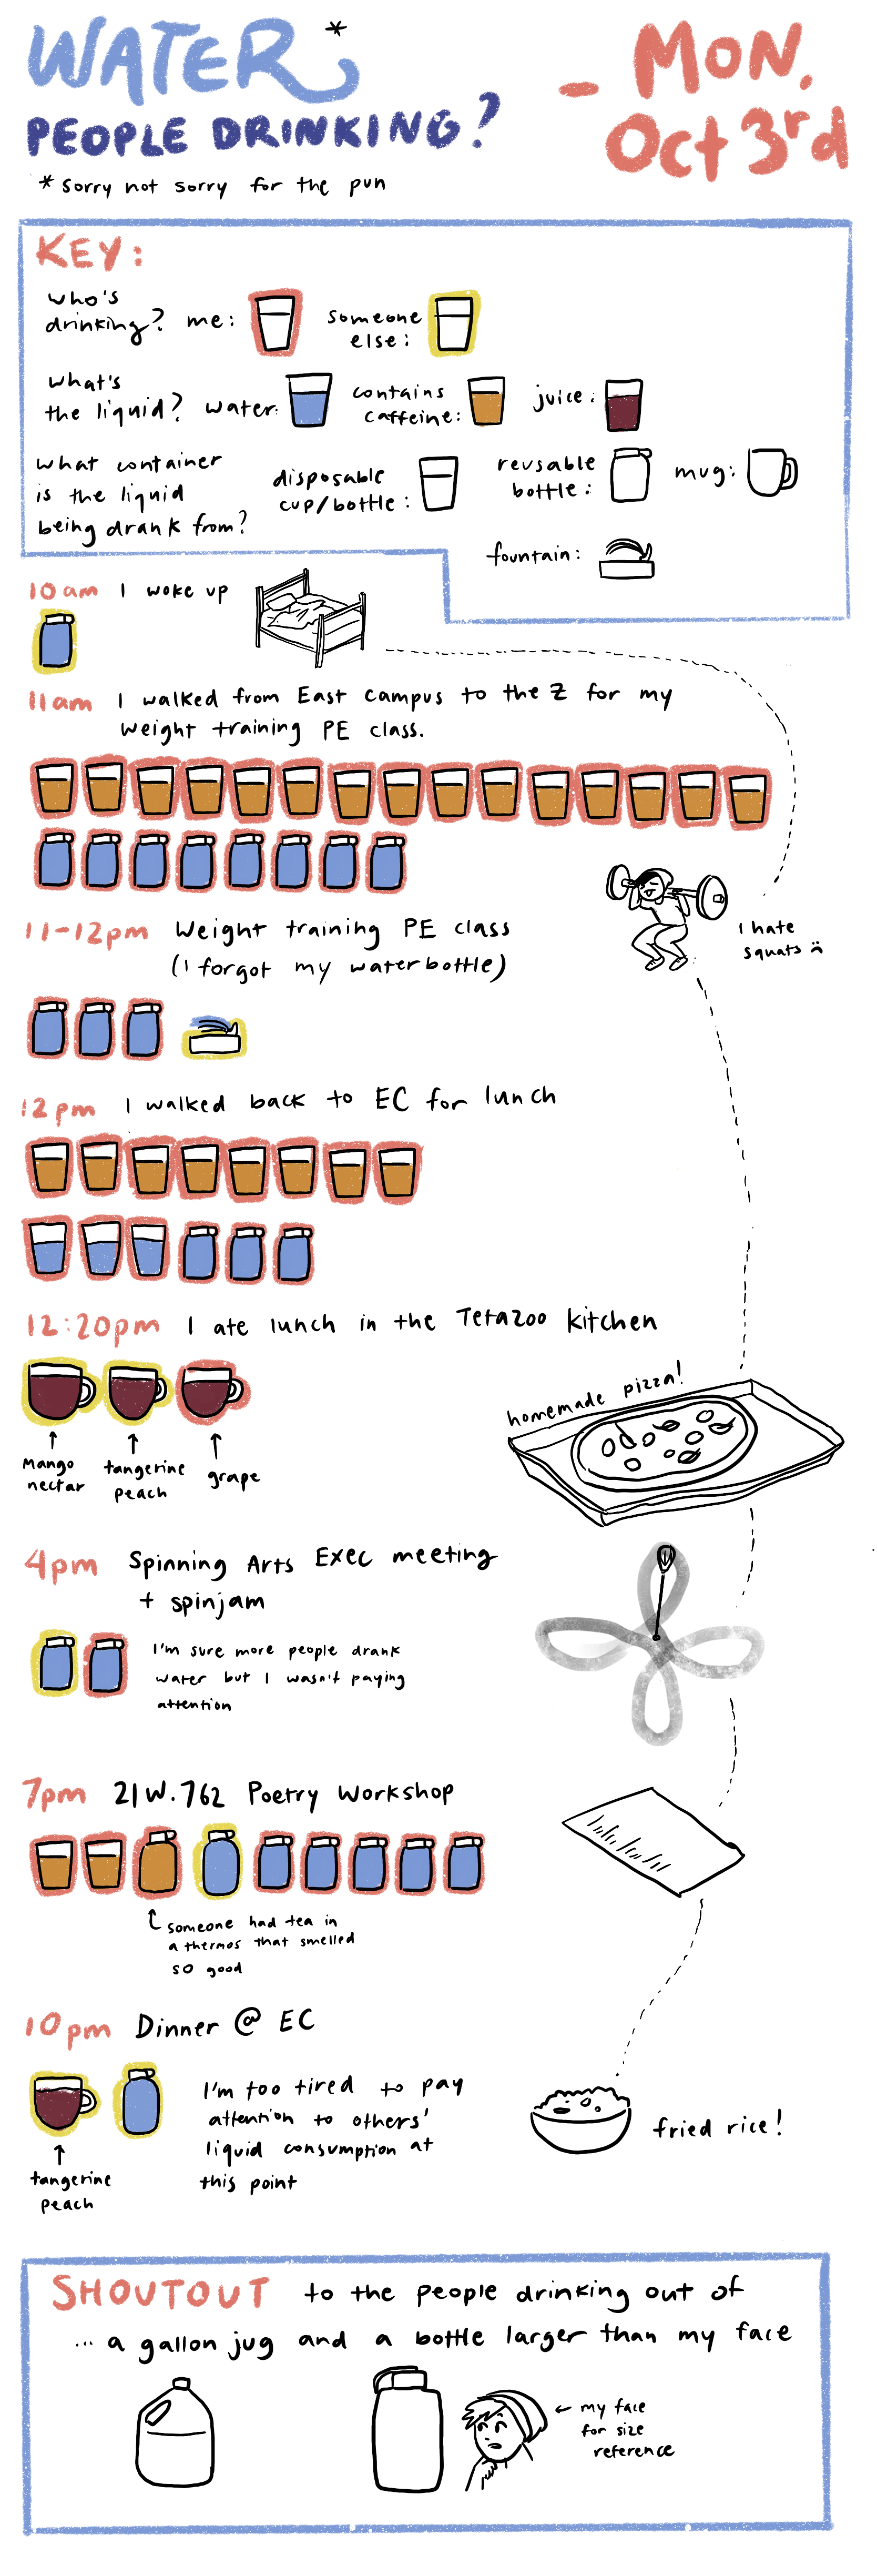 WATER*
PEOPLE DRINKING?
- MON.
Oct 3rd
* sorry not sorry for the pun
KEY:
who's
drinking? me: someone
else:
what's
the liquid? water: contains
caffeine: juice:
what container
is the liquid
being drank from?
disposable
cup/bottle:
reusable
bottle:
mug:
fountain:
10am I woke up
11am I walked from East Campus to the Z for my
weight training PE class.
11-12pm Weight training PE class
(I forgot my waterbottle)
I hate
squats :(
12pm I walked back to EC for lunch
12:20pm I ate lunch in the Tetazoo kitchen
Mango
nectar
tangerine
peach
grape
homemade pizza!
4pm Spinning Arts Exec meeting
+ spinjam
I'm sure more people drank
water but I wasn't paying
attention
7pm 21W.762 Poetry Workshop
someone had tea in
a thermos that smelled
so good
10pm Dinner @ EC
tangerine
peach
I'm too tired to pay
attention to others'
liquid consumption at
this point
fried rice!
SHOUTOUT to the people drinking out of
... a gallon jug and a bottle larger than my face
← my face
for size
reference